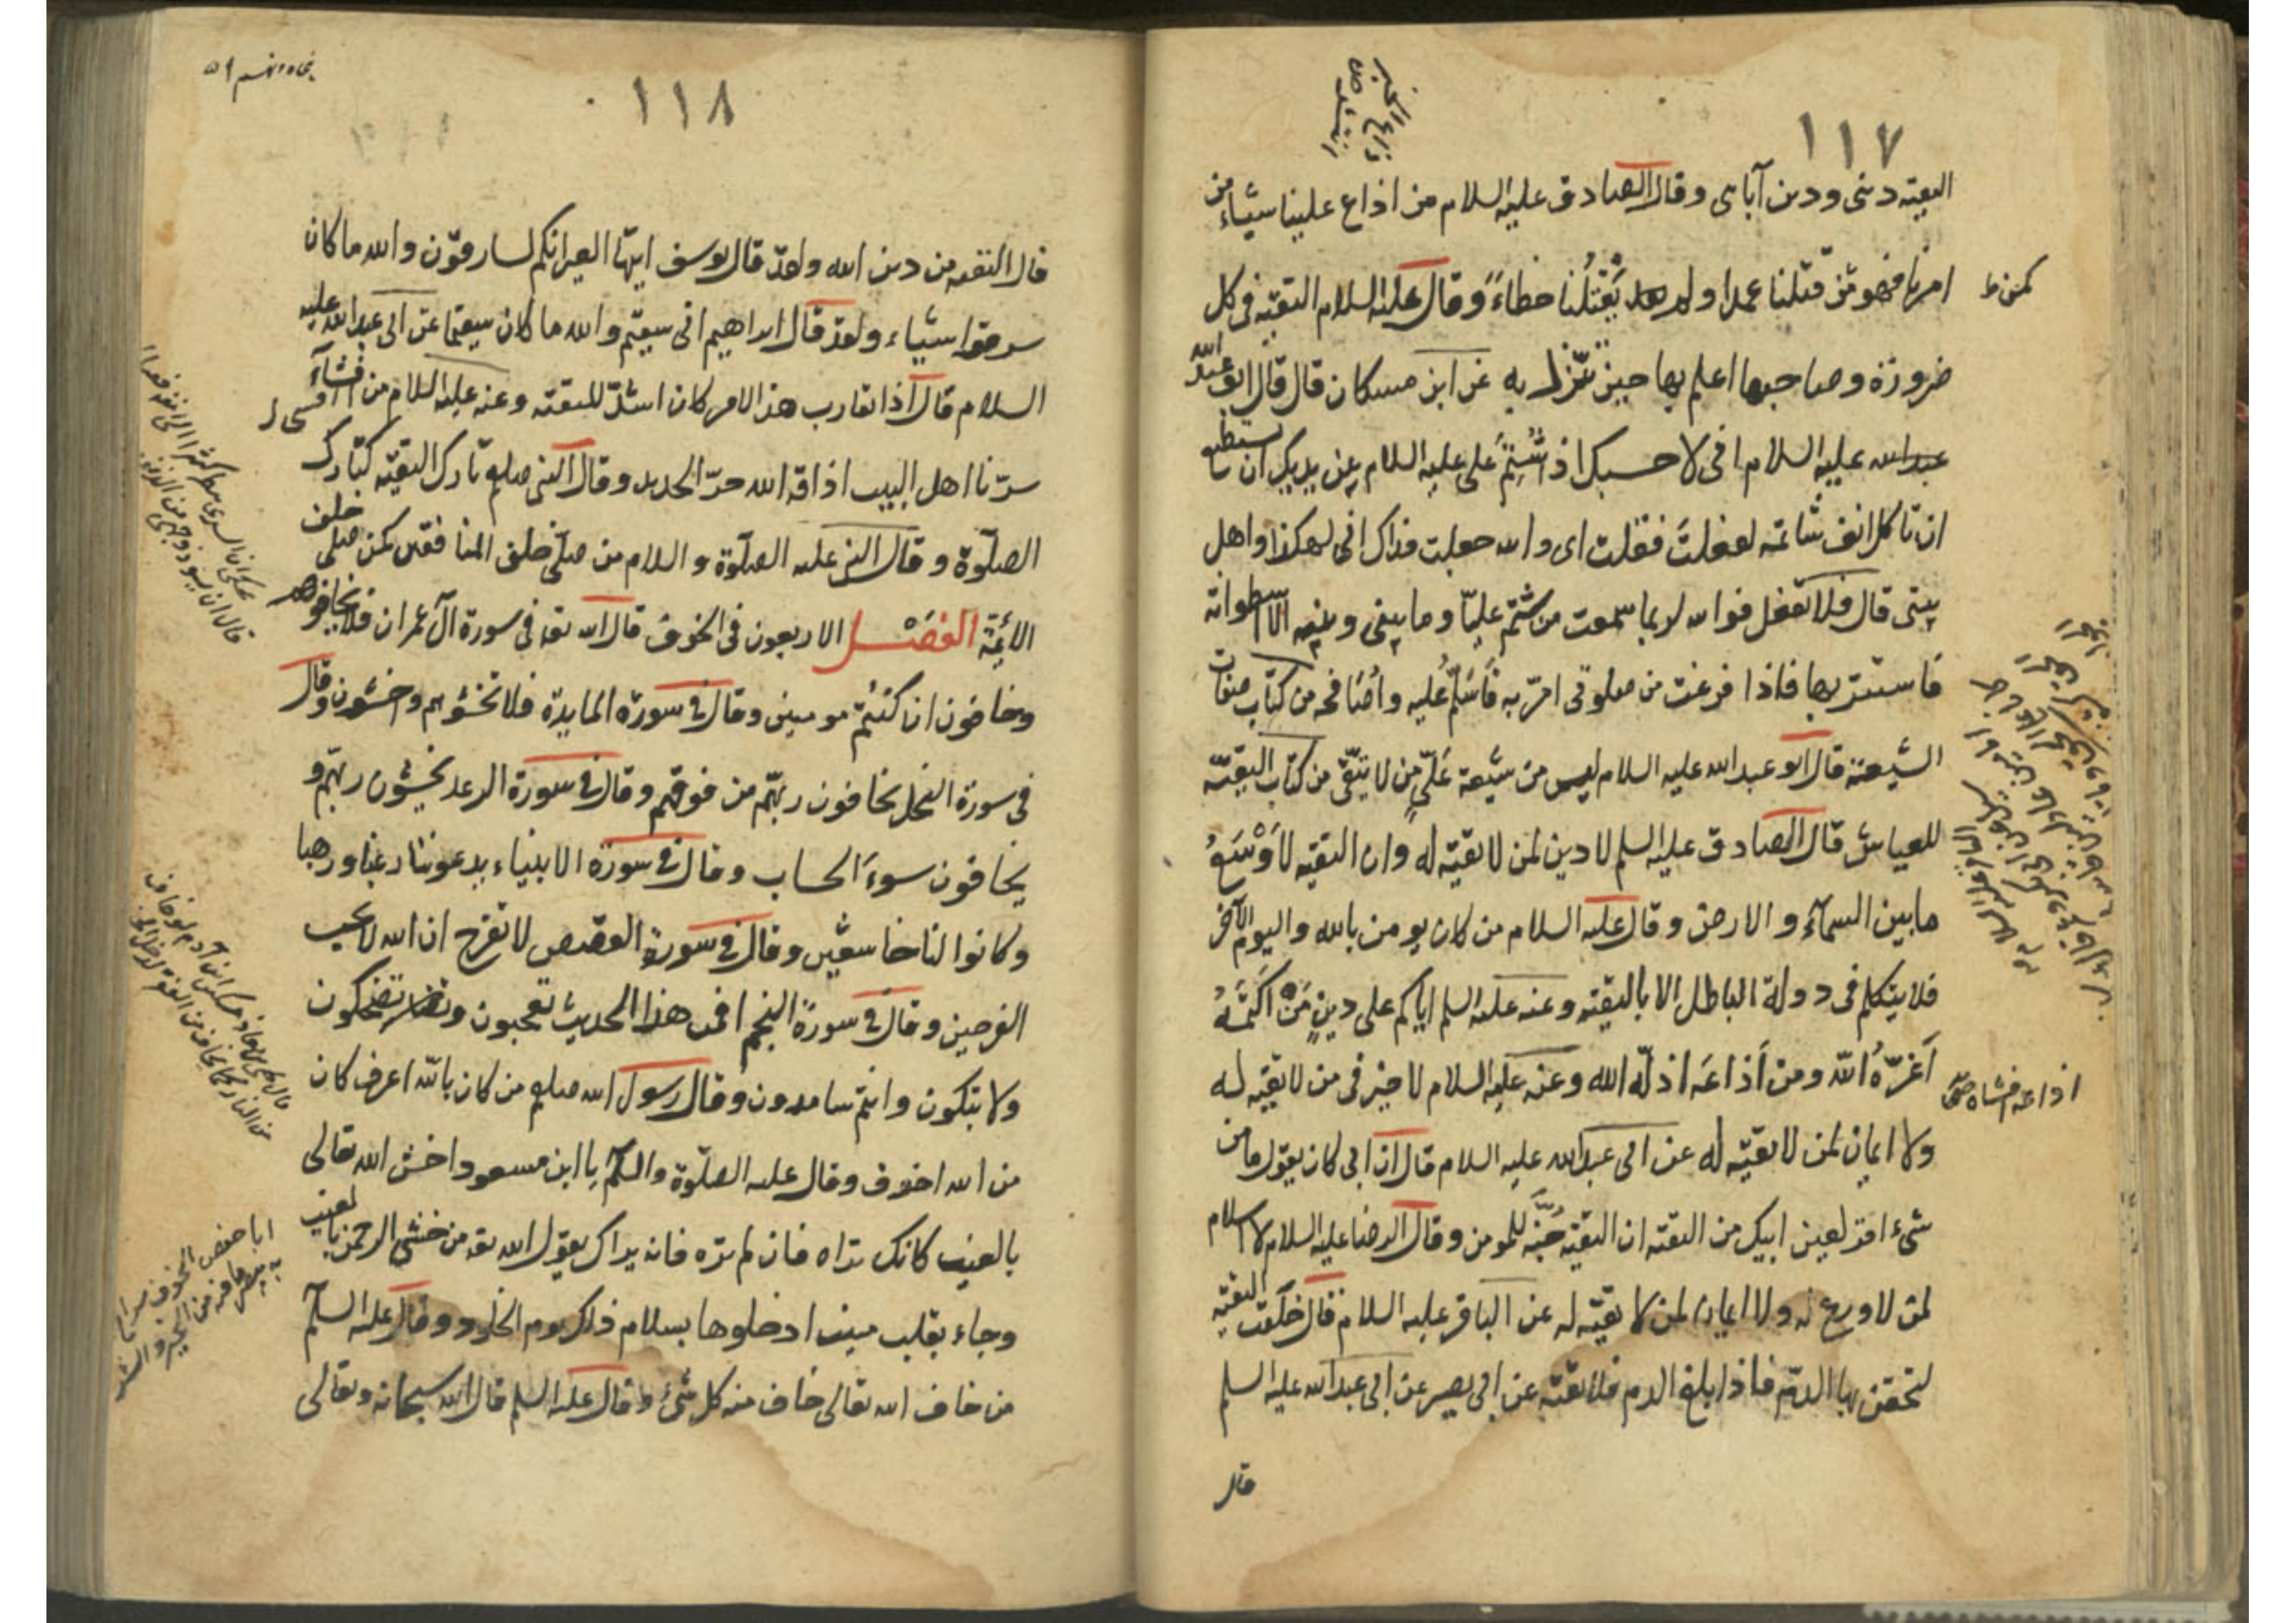 ١١٧
التقيّة ديني ودين آبائي وقال الصادق عليه السلام من اذاع علينا شيئاء من
امرنا فهو كمن قتلنا عمدا ولم يَقْتُلْنا خطاءً وقال عليه السلام التقيّة في كل
كمن ظ
ضرورة وصاحبها اعلم بها حين تنزل به عن ابن مسكان قال قال ابو عبد الله
عبد الله عليه السلام انى لا حسبك اذا شُتِمَ على عليه السلام بين يديك ان تستطيع
ان تاكل انف شاتمه لفعلت فقلت اى والله جعلت فداك انى لهكذا واهل
بيتى قال فلا تفعل فوالله لربما سمعت من شتم عليّا وما بينى وبينه الا اسطوانة
فاستتر بها فاذا فرغت من صلوتى امرّ به فَاُسَلِّمُ عليه واُصَافحه من كتاب صفات
الشيعة قال ابو عبد الله عليه السلام ليس من شيعة عَلّىٍ من لا يتّقى من كتاب التقيّة
للعياش قال الصادق عليه السلم لا دين لمن لا تقيّة له وان التقيّه لاَوْسَعُ
ما بين السمآء والارض وقال عليه السلام من كان يومن بالله واليوم الآخر
فلا يتكلم فى دولة الباطل الا بالتقيّه وعنه عليه السلم اياكم على دينٍ مَنْ اكَتَمَهُ
اَعَزّهُ الله ومن اَذَاعَه اذلّه الله وعنه عليه السلام لا خير فى من لا تقيّه له
اذاعه افشاه
ولا ايمان لمن لا تقيّه له عن ابى عبد الله عليه السلام قال ان ابى كان يقول ما من
شىء اقر لعين ابيك من التقيّه ان التقيّه جُنَّة للمومن وقال الرضا عليه السلام لا اسلام
لمن لا ورع له ولا ايمان لمن لا تقيّه له عن الباقر عليه السلام قال جعلت التقيّه
لتحقن بها الدّم فاذا بلغ الدم فلا تقيّة عن ابى بصير عن ابى عبد الله عليه السلم
قال
١١٨
قال التقيّه من دين الله ولقد قال يوسف ايتها العير انكم لسارقون والله ما كان
سرقوا شيئاء ولقد قال ابراهيم انى سقيم والله ما كان سقيما عن ابى عبد الله عليه
السلام قال اذا تقارب هذا الامر كان اشدّ للتقيّه وعنه عليه السلام من افشآء
افشى
سرّنا اهل البيت اذاقه الله حرّ الحديد وقال النبى صلعم تارك التقيّه كتارك
الصلوٰة وقال النبى عليه الصلوٰة والسلام من صلّى خلف المنافقين كمن صلى خلف
الائمّة الفَصْل الاربعون فى الخوف قال الله تعه فى سورة آل عمران فلا تخافوهم
وخافون ان كنتُم مومنين وقال فى سورة المايدة فلا تخشوهم واخشون وقال
فى سورة النحل يخافون ربّهم من فوقهم وقال فى سورة الرعد يخشون ربّهم و
يخافون سوءَ الحساب وقال فى سورة الانبياء يدعوننا رغبا ورهبا
وكانوا لنا خاشعين وقال فى سورة القصص لا تفرح ان الله لا يحب
الفرحين وقال فى سورة النجم افمن هذا الحديث تعجبون وتضحكون
ولا تبكون وانتم سامدون وقال رسول الله صلعم من كان بالله اعرف كان
من الله اخوف وقال عليه الصلوٰة والسلٰم يا ابن مسعود اخش الله تعالى
بالغيب كانك تراه فان لم تره فانه يراك يقول الله تعه من خشى الرحمن بالغيب
وجاء بقلب منيب ادخلوها بسلام ذلك يوم الخلود وقال عليه السلٰم
من خاف الله تعالى خاف منه كل شىء وقال عليه السلم قال الله سبحانه وتعالى